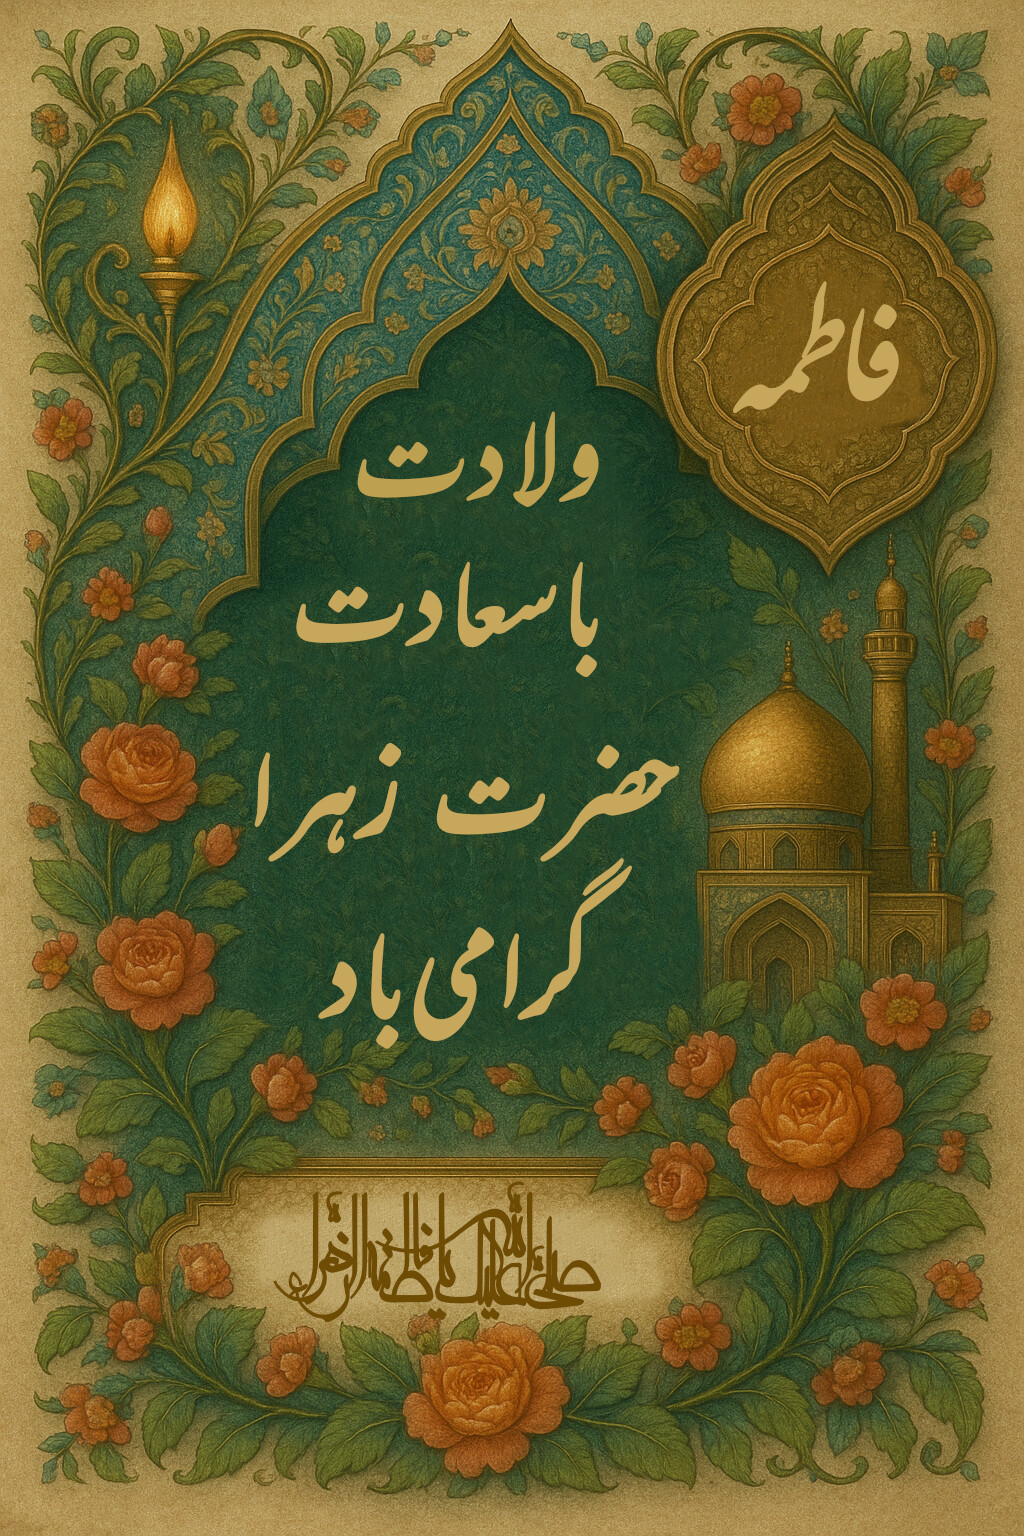 فاطمه
ولادت
باسعادت
حضرت زهرا
گرامی باد
صلی الله علیک یا فاطمة الزهراء